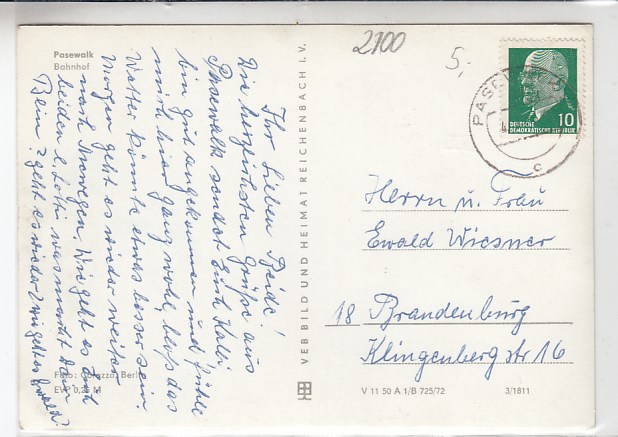 Pasewalk
Bahnhof
Ihr Lieben Beide!
Die herzlichsten Grüße aus
Pasewalk sendet Euch
bin gut angekommen und fühle
mich hier ganz wohl, bloß das
Wetter könnte etwas besser sein.
Morgen geht es wieder weiter
nach Norwegen. Wie geht es Euch
beiden l. was macht dein
Bein? geht es wieder?
Foto: Darazza, Berlin
EVP 0,25 M
VEB BILD UND HEIMAT REICHENBACH I. V.
2100
5,-
PASEWALK
c
10
DEUTSCHE
DEMOKRATISCHE REPUBLIK
Herrn u. Frau
Ewald Wiesner
18 Brandenburg
Klingenberg str 16
V 11 50 A 1/B 725/72
3/1811